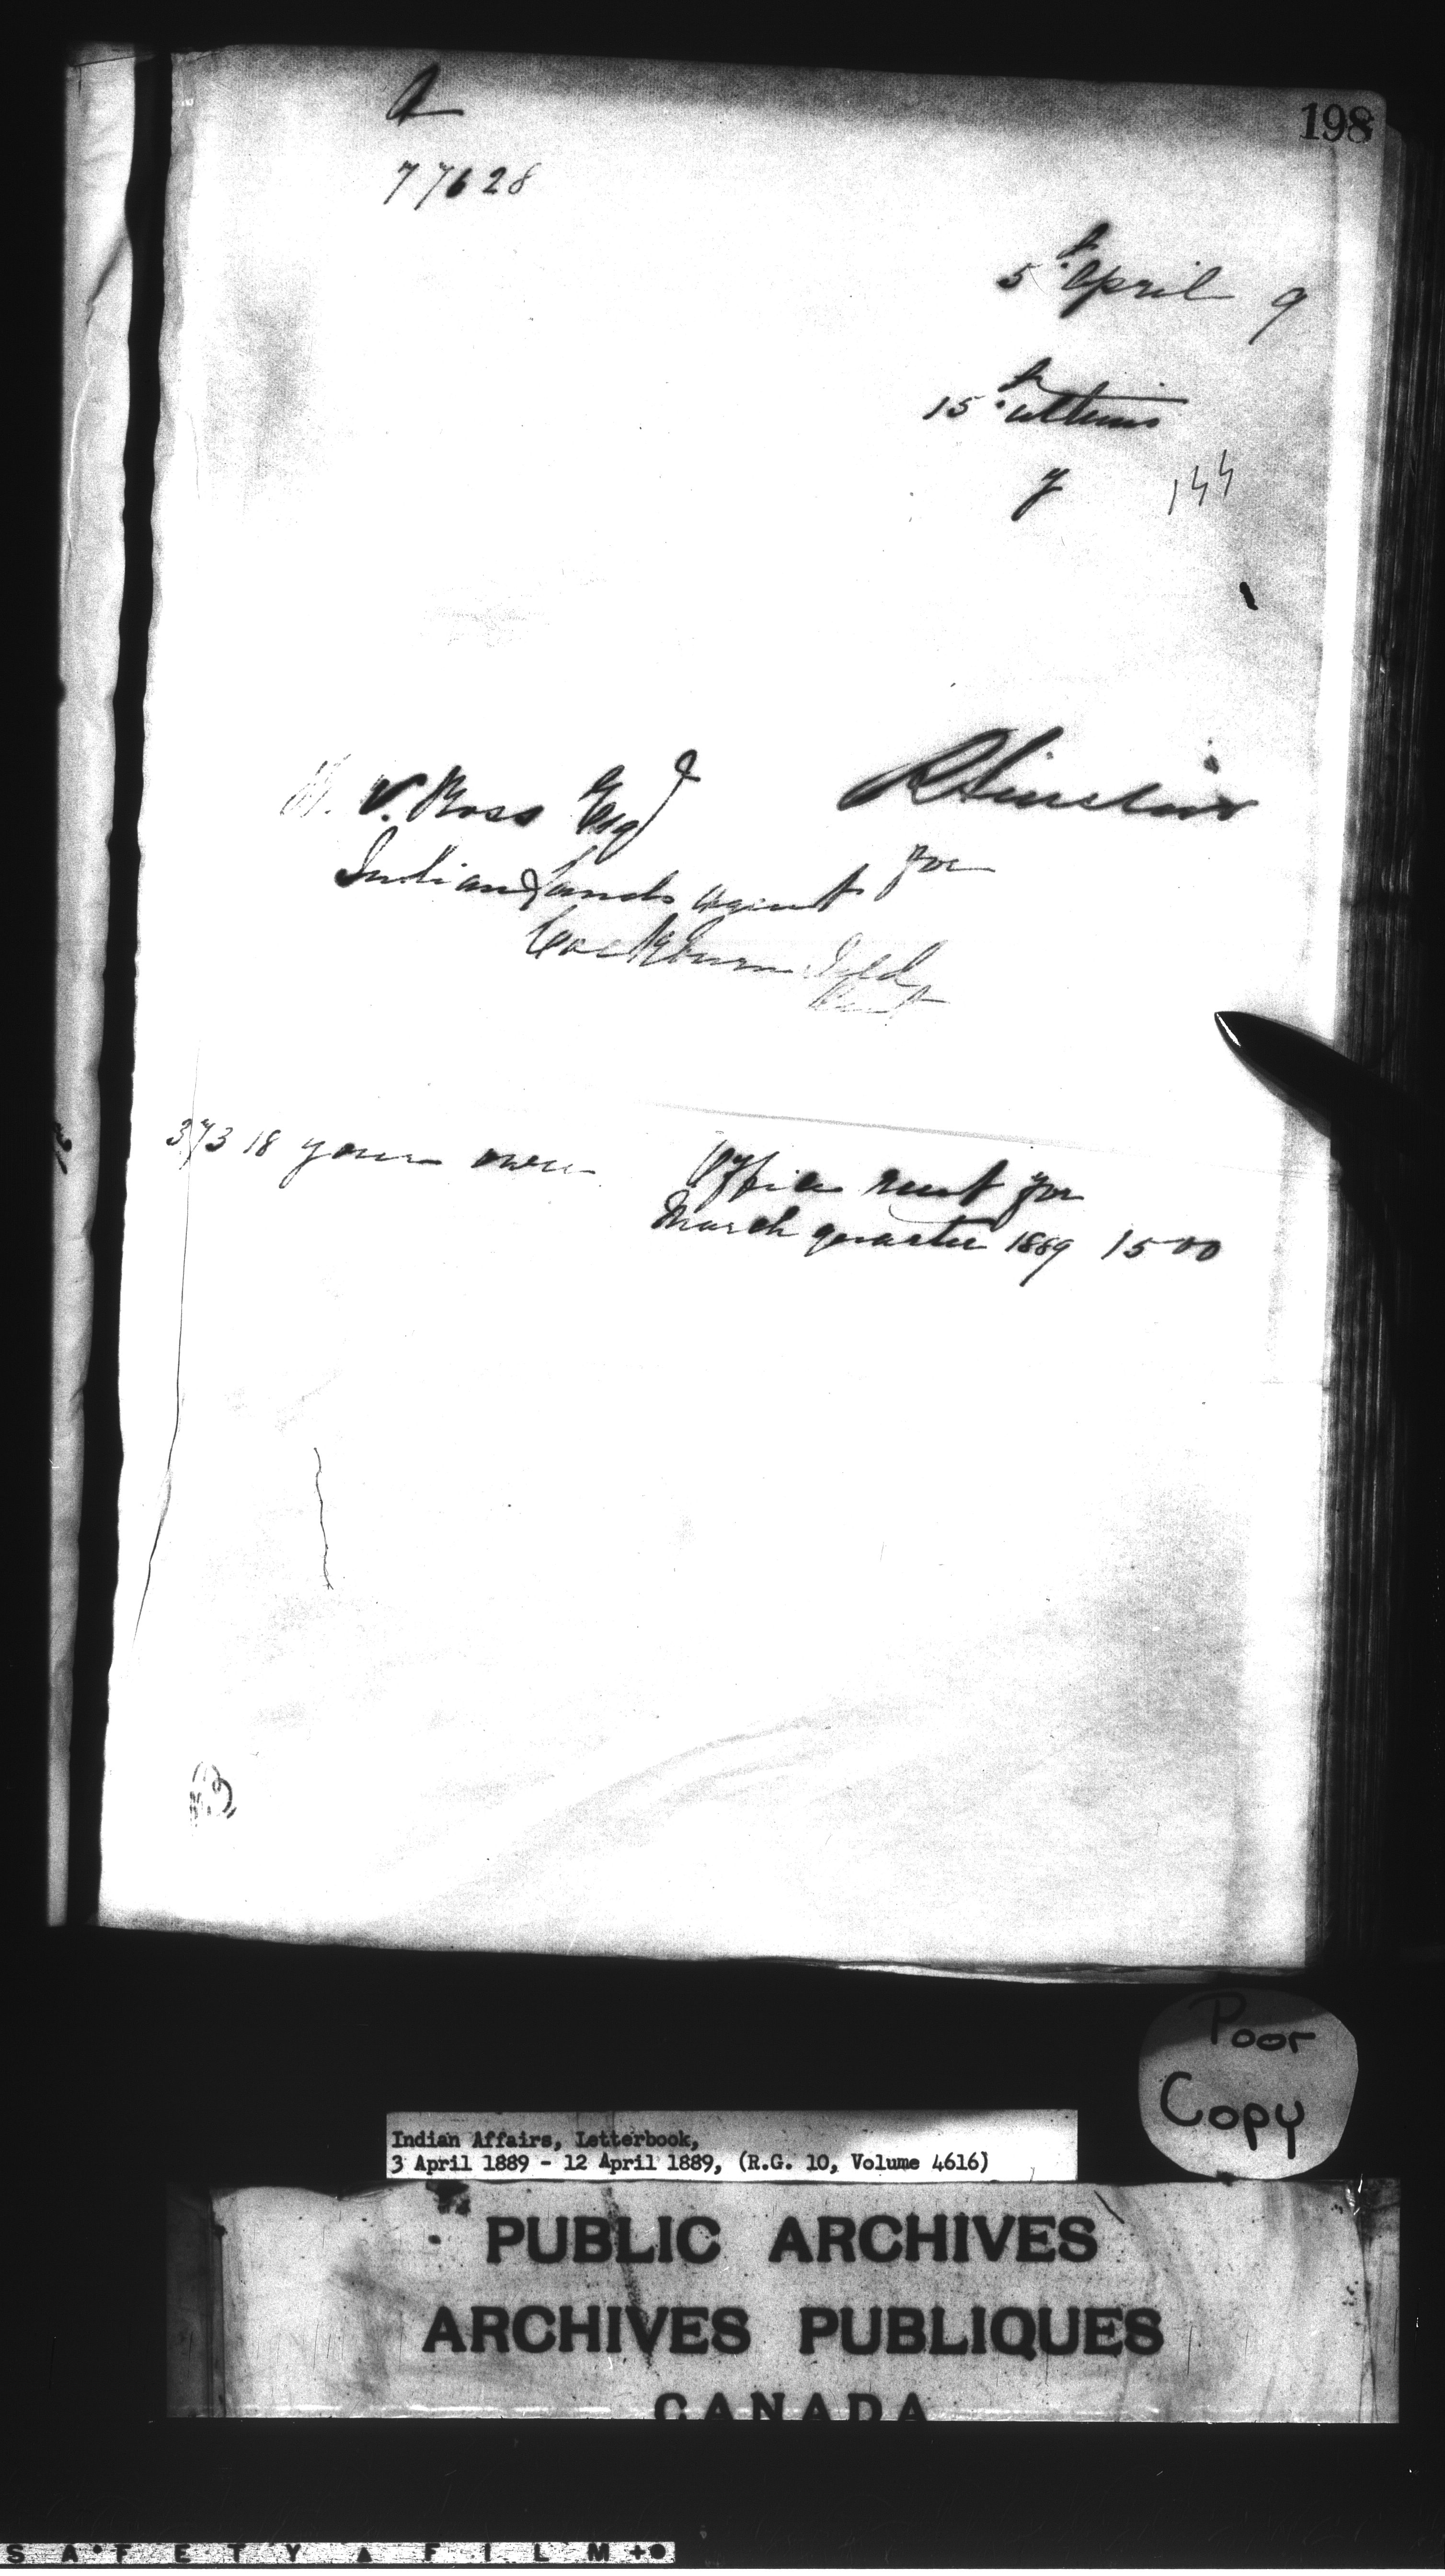 198
A
77628
5th April 9
15th ultimo
y 144
V. Ross Esqr
R Sinclair
for
Indian Lands Agent
Cockburn Isld
Ont
37318 your own Office rent for
March quarter 1889 1500
Poor
Copy
Indian Affairs, Letterbook,
3 April 1889 - 12 April 1889, (R.G. 10, Volume 4616)
PUBLIC ARCHIVES
ARCHIVES PUBLIQUES
CANADA
SAFETY ▲ FILM